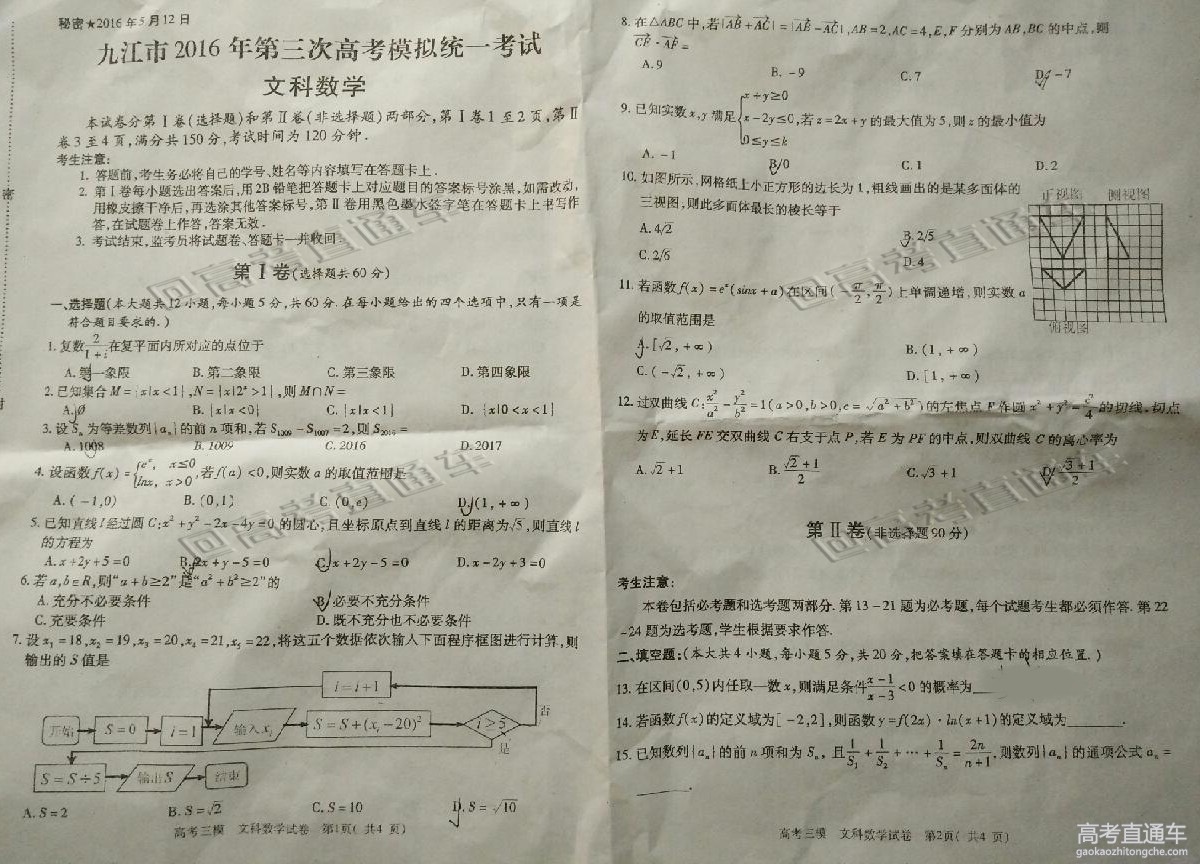 秘密★2016年5月12日
九江市2016年第三次高考模拟统一考试
文科数学
本试卷分第Ⅰ卷(选择题)和第Ⅱ卷(非选择题)两部分,第Ⅰ卷1至2页,第Ⅱ
卷3至4页,满分共150分,考试时间为120分钟.
考生注意:
1. 答题前,考生务必将自己的学号、姓名等内容填写在答题卡上.
2. 第Ⅰ卷每小题选出答案后,用2B铅笔把答题卡上对应题目的答案标号涂黑,如需改动,
用橡皮擦干净后,再选涂其他答案标号,第Ⅱ卷用黑色墨水签字笔在答题卡上书写作
答,在试题卷上作答,答案无效.
3. 考试结束,监考员将试题卷、答题卡一并收回.
第Ⅰ卷(选择题共60分)
一、选择题(本大题共12小题,每小题5分,共60分.在每小题给出的四个选项中,只有一项是
符合题目要求的.)
1. 复数2/(1+i)在复平面内所对应的点位于
A. 第一象限 B. 第二象限 C. 第三象限 D. 第四象限
2. 已知集合M={x|x<1},N={x|2ˣ>1},则M∩N=
A. ∅ B. {x|x<0} C. {x|x<1} D. {x|0<x<1}
3. 设Sₙ为等差数列{aₙ}的前n项和,若S₁₀₀₉-S₁₀₀₇=2,则S₂₀₁₆=
A. 1008 B. 1009 C. 2016 D. 2017
4. 设函数f(x)={eˣ, x≤0; lnx, x>0,若f(a)<0,则实数a的取值范围是
A. (-1,0) B. (0,1) C. (0,e) D. (1,+∞)
5. 已知直线l经过圆C:x²+y²-2x-4y=0的圆心,且坐标原点到直线l的距离为√5,则直线l
的方程为
A. x+2y+5=0 B. 2x+y-5=0 C. x+2y-5=0 D. x-2y+3=0
6. 若a,b∈R,则“a+b≥2”是“a²+b²≥2”的
A. 充分不必要条件 B. 必要不充分条件
C. 充要条件 D. 既不充分也不必要条件
7. 设x₁=18,x₂=19,x₃=20,x₄=21,x₅=22,将这五个数据依次输入下面程序框图进行计算,则
输出的S值是
i=i+1
开始 S=0 i=1 输入xᵢ S=S+(xᵢ-20)² i≥5 否
是
S=S÷5 输出S 结束
A. S=2 B. S=√2 C. S=10 D. S=√10
高考三模 文科数学试卷 第1页(共4页)
8. 在△ABC中,若|AB+AC|=|AB-AC|,AB=2,AC=4,E,F分别为AB,BC的中点,则
CE·AF=
A. 9 B. -9 C. 7 D. -7
9. 已知实数x,y满足{x+y≥0; x-2y≤0; 0≤y≤k,若z=2x+y的最大值为5,则z的最小值为
A. -1 B. 0 C. 1 D. 2
10. 如图所示,网格纸上小正方形的边长为1,粗线画出的是某多面体的
三视图,则此多面体最长的棱长等于
A. 4√2 B. 2√5
C. 2√6 D. 4
正视图 侧视图
俯视图
11. 若函数f(x)=eˣ(sinx+a)在区间(-π/2,π/2)上单调递增,则实数a
的取值范围是
A. [√2,+∞) B. (1,+∞)
C. (-√2,+∞) D. [1,+∞)
12. 过双曲线C:x²/a²-y²/b²=1(a>0,b>0,c=√(a²+b²))的左焦点F作圆x²+y²=c²/4的切线,切点
为E,延长FE交双曲线C右支于点P,若E为PF的中点,则双曲线C的离心率为
A. √2+1 B. (√2+1)/2 C. √3+1 D. (√3+1)/2
第Ⅱ卷(非选择题90分)
考生注意:
本卷包括必考题和选考题两部分.第13-21题为必考题,每个试题考生都必须作答.第22
-24题为选考题,学生根据要求作答.
二、填空题:(本大共4小题,每小题5分,共20分,把答案填在答题卡的相应位置.)
13. 在区间(0,5)内任取一数x,则满足条件(x-1)/(x-3)<0的概率为____
14. 若函数f(x)的定义域为[-2,2],则函数y=f(2x)·ln(x+1)的定义域为______.
15. 已知数列{aₙ}的前n项和为Sₙ,且1/S₁+1/S₂+…+1/Sₙ=2n/(n+1),则数列{aₙ}的通项公式aₙ=
______.
高考三模 文科数学试卷 第2页(共4页)
密
封
@高考直通车
@高考直通车
@高考直通车
@高考直通车
高考直通车
gaokaozhitongche.com